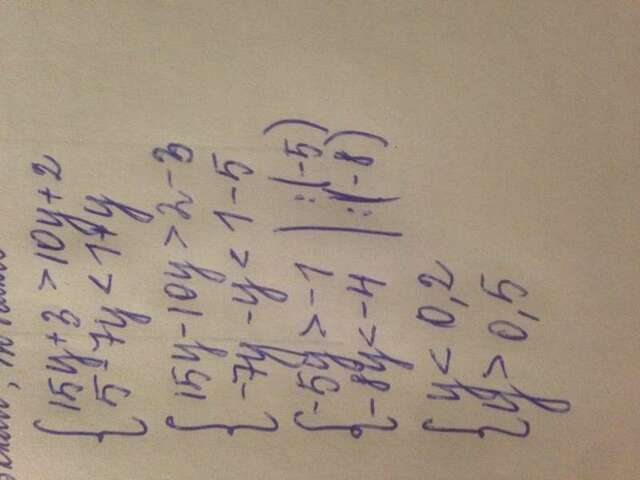 15y+3 > 10y+2
5-7y < 1+y
15y-10y > 2-3
-7y-y < 1-5
-5y > -1 | :(-5)
-8y < -4 | :(-8)
y < 0,2
y > 0,5